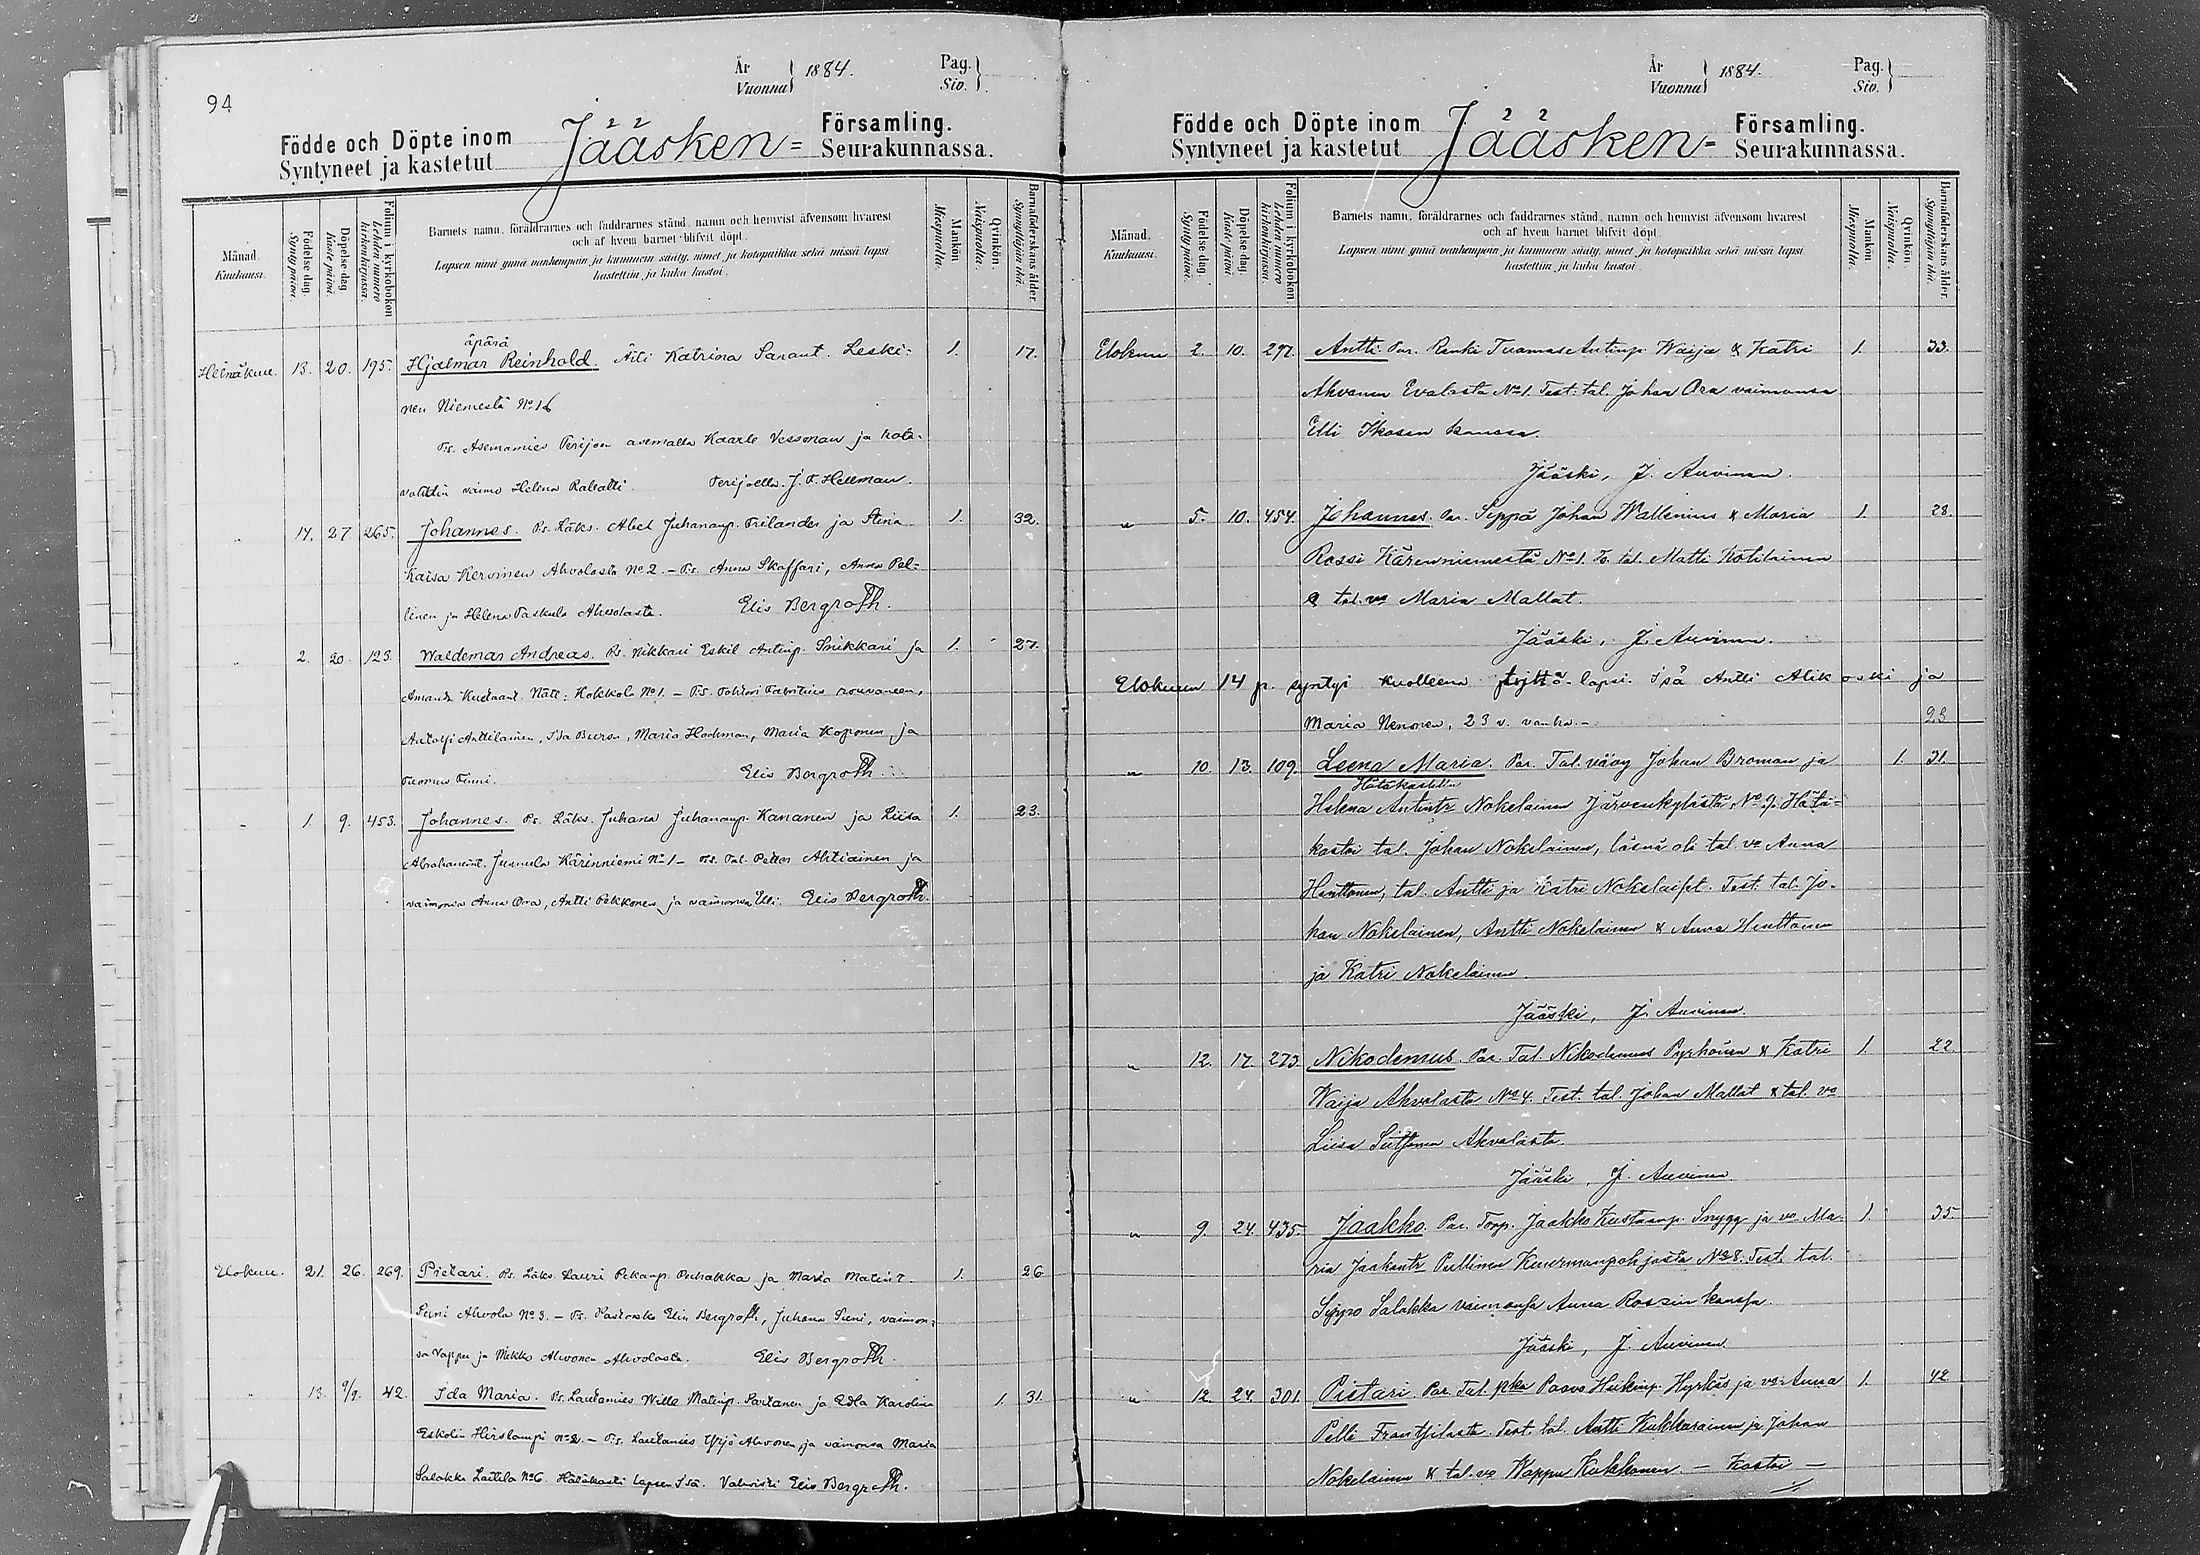 94
År
Vuonna } 1884.
Pag.
Siv. }
Födde och Döpte inom
Syntyneet ja kastetut
Jääsken=
Församling.
Seurakunnassa.
Månad.
Kuukausi.
Födelse dag.
Synty päivä.
Döpelse dag
Kaste päivä.
Folium i kyrkoboken
Lehden numero kirkonkirjassa.
Barnets namn, föräldrarnes och faddrarnes stånd, namn och hemvist äfvensom hvarest
och af hvem barnet blifvit döpt.
Lapsen nimi ynnä vanhempain ja kummein sääty, nimet ja kotopaikka sekä missä lapsi
kastettiin ja kuka kastoi.
Mankön.
Miespuolta.
Qvinkön.
Naispuolta.
Barnaföderskans ålder.
Synnyttäjän ikä.
äpärä
Heinäkuu. 13. 20. 195. Hjalmar Reinhold. Äiti Katrina Leski= 1. 17.
nen Niemestä No 16
Ts. Asemamies Perijoen asemalla Kaarle Vessonau ja
vaimo Helena Perijoella. J. F. Hellman.
" 14. 27. 265. Johannes. Ps. Läks. Abel Juhananp. Frilander ja Stina 1. 32.
Kaisa Kervinen Ahvolasta No 2. – Ts. Anna Skaffari, Anna Pel=
linen ja Helena Paskula Ahvolasta. Elis Bergroth.
" 2. 20. 123. Waldemar Andreas. Ps. Nikkari Eskil Antinp. Snikkari ja 1. 27.
Amanda Kustaant. Nätt: Kokkola No 1. – Ts. Tohtori Fabritius rouvaneen,
Anttilainen, Ida Buren, Maria Hockman, Maria Koponen, ja
Tuomas Finni. Elis Bergroth.
" 1. 9. 453. Johannes. Ps. Läks. Juhana Juhananp. Kananen ja Liisa 1. 23.
Abrahamint. Junnula Kärinniemi No 1 – Ts. Tal. Petter Ahtiainen ja
vaimonsa Anna Ora, Antti Pekkonen ja vaimonsa Elli. Elis Bergroth.
Elokuu. 21. 26. 269. Pietari. Ps. Läks. Lauri Pekanp. Puhakka ja Maria Matint. 1. 26
Suni Ahvola No 3. – Ts. Pastorska Elin Bergroth, Juhana Suni, vaimon=
sa Vappu ja Mikko Ahvonen Ahvolasta. Elis Bergroth.
" 13. 9/9. 42. Ida Maria. Ps. Lautamies Wille Matinp. Partanen ja Edla Karolina 1. 31.
Eskolin Hirslampi No 2. – Ts. Lautamies Yrjö Ahvonen ja vaimonsa Maria
Salakka Laitila No 6. Hätäkasti lapsen Isä. Vahvisti Elis Bergroth.
År
Vuonna } 1884.
Pag.
Siv. }
Födde och Döpte inom
Syntyneet ja kastetut
Jääsken=
Församling.
Seurakunnassa.
Månad.
Kuukausi.
Födelse dag.
Synty päivä.
Döpelse dag.
Kaste päivä.
Folium i kyrkoboken.
Lehden numero kirkonkirjassa.
Barnets namn, föräldrarnes och faddrarnes stånd, namn och hemvist äfvensom hvarest
och af hvem barnet blifvit döpt.
Lapsen nimi ynnä vanhempain ja kummein sääty, nimet ja kotopaikka sekä missä lapsi
kastettiin ja kuka kastoi.
Mankön.
Miespuolta.
Qvinkön.
Naispuolta.
Barnaföderskans ålder.
Synnyttäjän ikä.
Elokuu 2. 10. 297. Antti. Par. Renki Tuomas Antinp. Waija & Katri 1. 33.
Ahvonen No 1. Test. tal. Johan Ora vaimonsa
Elli Ikosen kanssa.
Jääski, J. Auvinen.
" 5. 10. 454. Johannes. Par. Seppä Johan Wallenius & Maria 1. 28.
Rossi Kärenniemestä No 1. To. tal. Matti Kotilainen
& tal. vo Maria Mallat.
Jääski, J. Auvinen.
Elokuun 14 p. syntyi kuolleena tyttö-lapsi. Isä Antti Alikoski ja
Maria Nenonen, 23 v. vanha. – 23
" 10. 13. 109. Leena Maria. Par. Tal. vävy Johan Broman ja 1. 31.
Hätäkastettu
Helena Antintr Nokelainen Järvenkylästä No 9. Hätä=
kastoi tal. Johan Nokelainen, läsnä oli tal. vo Anna
Henttonen, tal. Antti ja Katri Nokelaiset. Test. tal. Jo=
han Nokelainen, Antti Nokelainen & Anna Henttonen
ja Katri Nokelainen.
Jääski, J. Auvinen.
" 12. 17. 273. Nikodemus. Par. Tal. Nikodemus Pyrhönen & Katri 1. 22.
Waija Ahvolasta No 4. Test. tal. Johan Mallat & tal. vo
Liisa Ahvolasta.
Jääski, J. Auvinen
" 9. 24. 435. Jaakko. Par. Torp. Jaakko Kustaanp. Snygg ja vo Ma= 1. 35.
ria Jaakontr Pullinen Kuurmanpohjasta No 8. Test. tal.
Seppo Salakka vaimonsa Anna Rossin kanssa.
Jääski, J. Auvinen.
" 12. 24. 301. Pietari. Par. Tal. pka Paavo Heikinp. Hyrkäs ja vo Anna 1. 42
Pelli Frantsilasta. Test. tal. Antti Kukkarainen ja Johan
Nokelainen & tal. vo Wappu Kukkonen. – Kastoi –